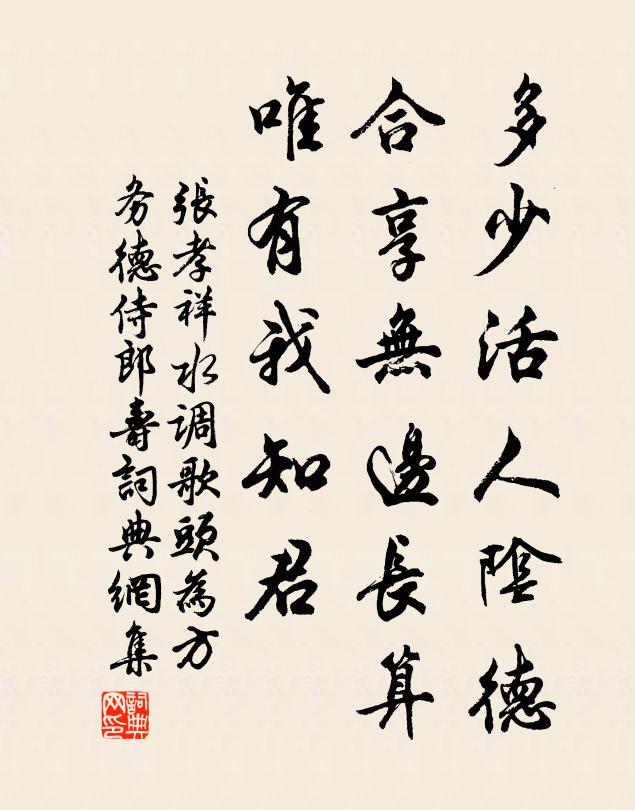 多少活人陰德
合享無邊長算
唯有我知君
張孝祥水調歌頭為方
务德侍郎壽詞典網集
詞典
网印